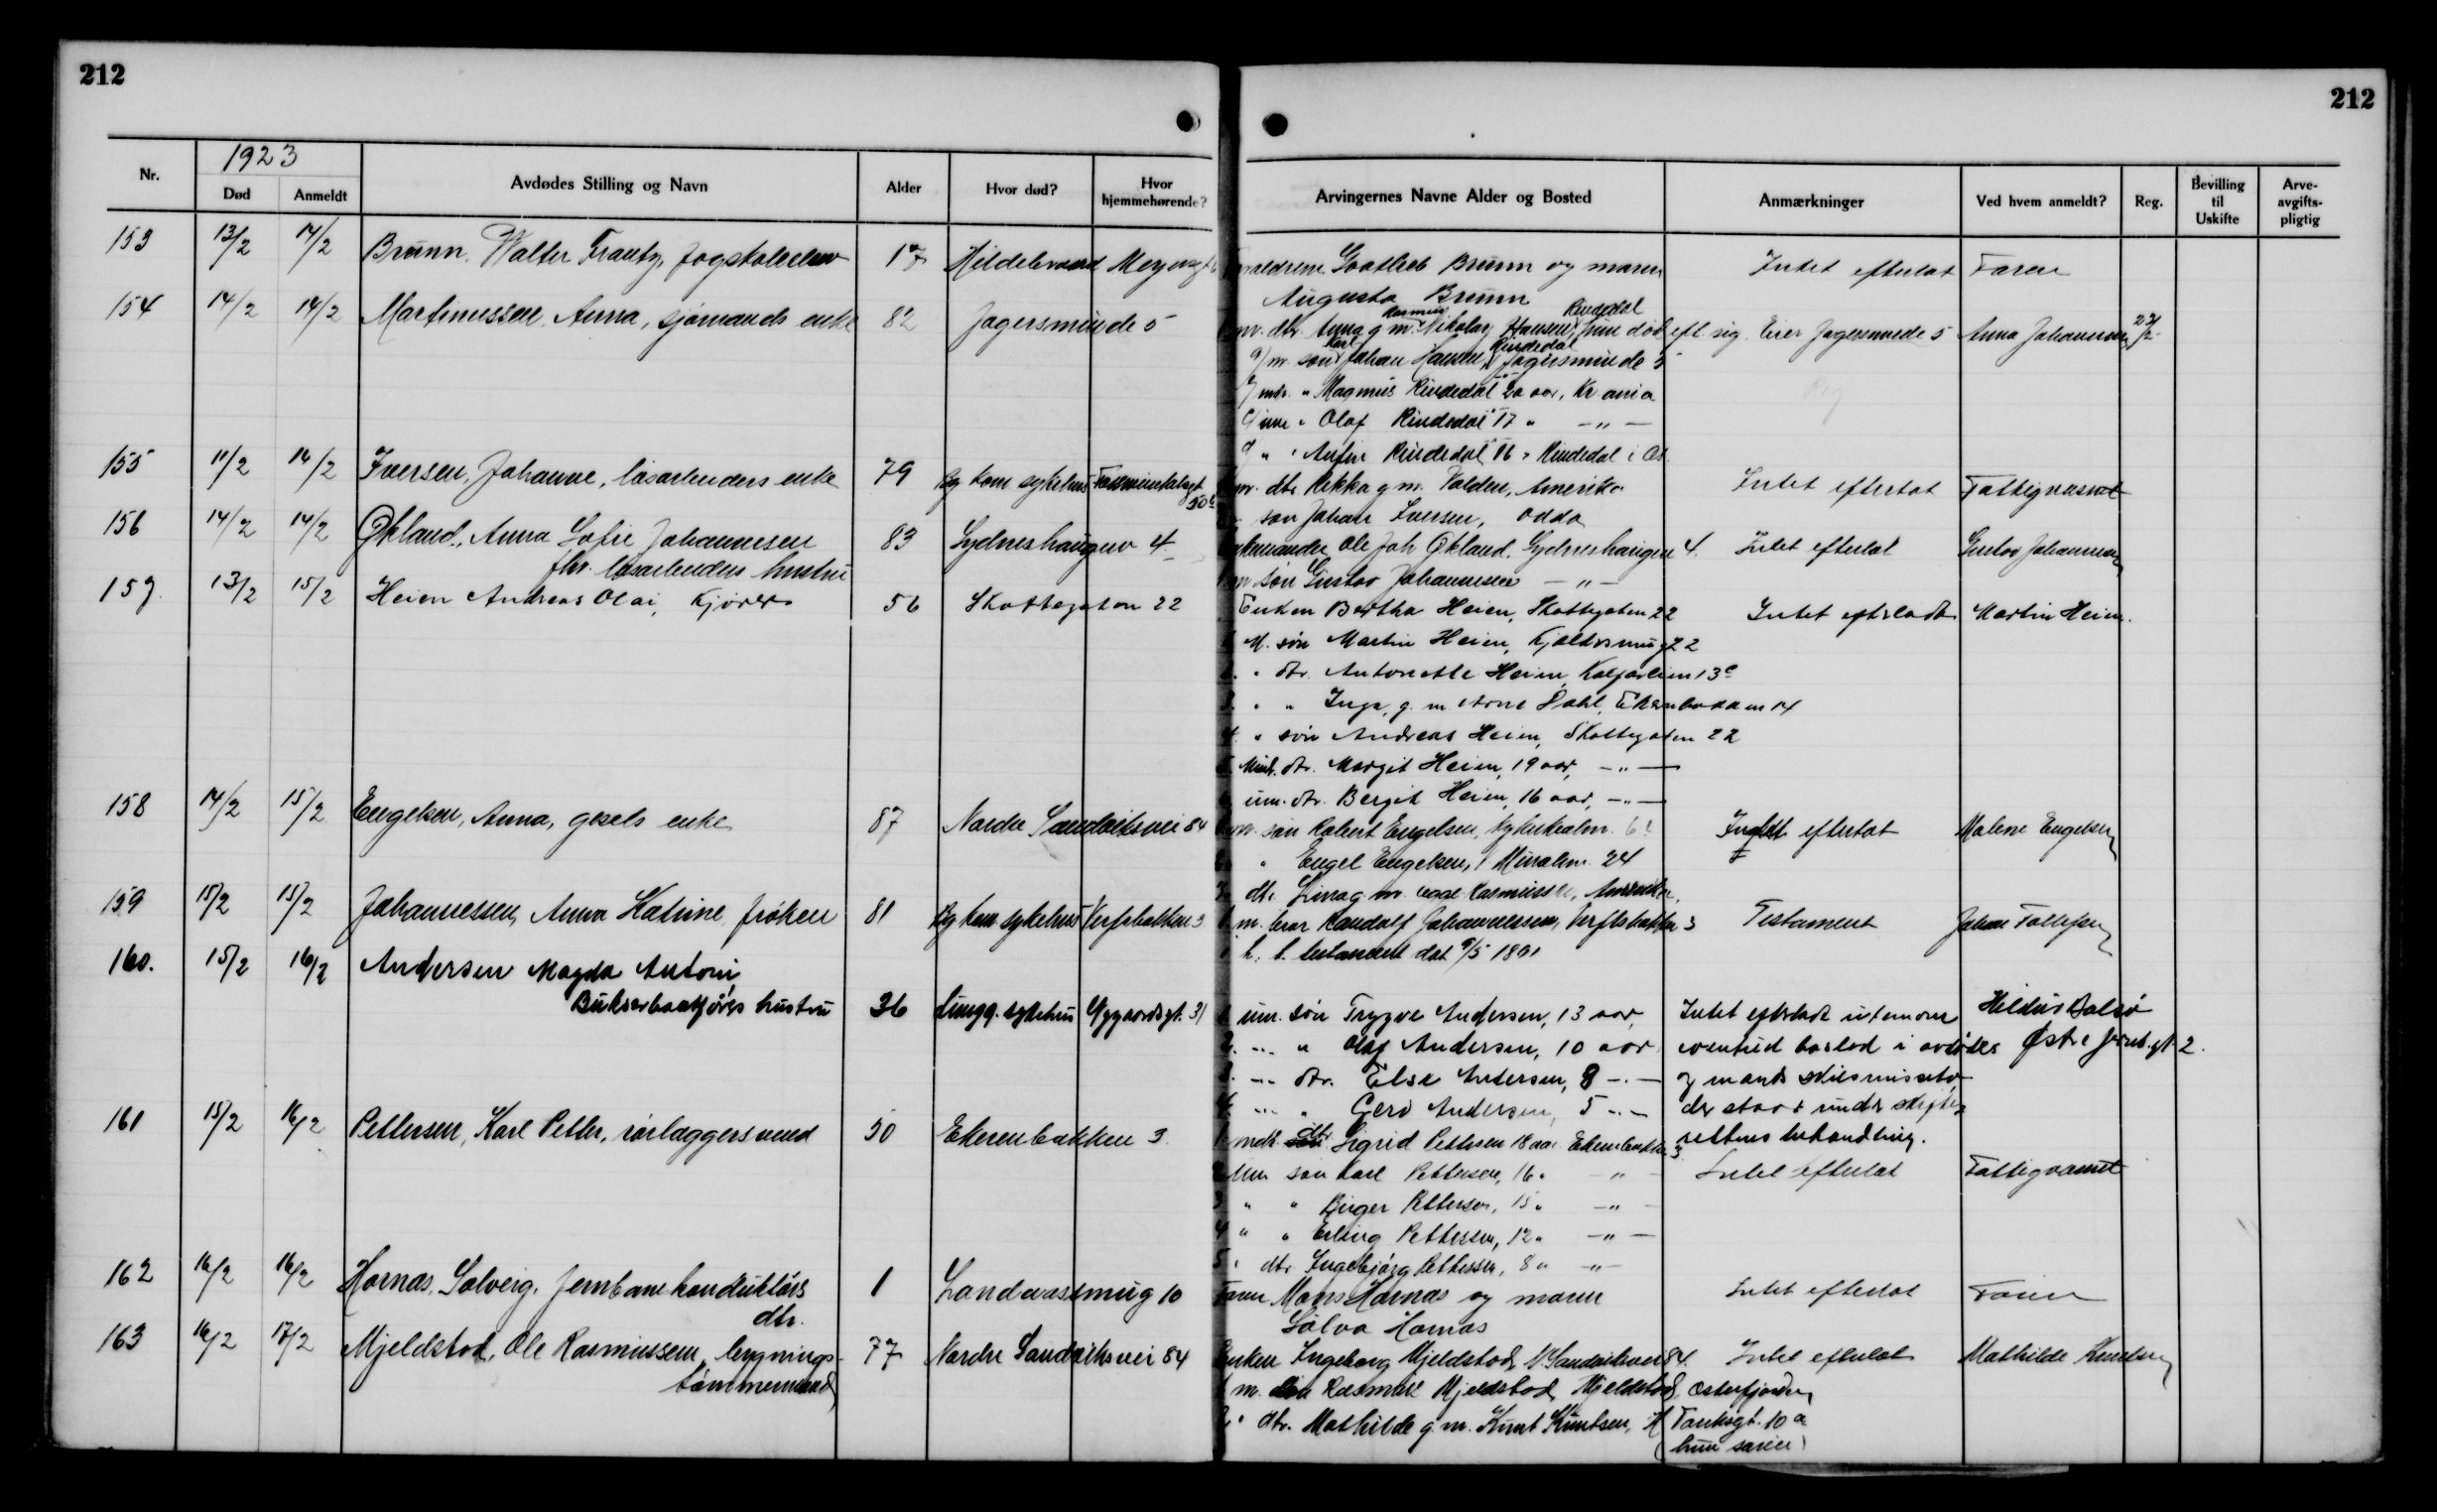 212
212
1923
Nr.
Død
Anmeldt
Avdødes Stilling og Navn
Alder
Hvor død?
Hvor hjemmehørende?
Arvingernes Navne Alder og Bosted
Anmærkninger
Ved hvem anmeldt?
Reg.
Bevilling til Uskifte
Arve-avgifts-pligtig
153 13/2 14/2 Brunn, Walter Frantz, fagskoleelev 17 Hildebrand Meyersgt
Forældrene Gottlieb Brunn og moren Intet efterlat Faren
Augusta Brunn
154 14/2 14/2 Martinussen Anna, sjømands enke 82 Jægersminde 5
Rasmus Rindedal
1 m. dtr. Anna g. m. Nikolay Hansen, hun død eft. sig Eier Jægersminde 5 Anna Johannesen 27/2
Karl Rindedal
a/ m. søn Johan Hansen, Jægersminde 5
b/ mdr. " Magnus Rindedal 20 aar, Kr.ania
c/ um " Olaf Rindedal 17 " — " —
d " " Anfin Rindedal 16 " Rindedal i
155 11/2 14/2 Iversen, Johanne, løsarbeiders enke 79 Bg kom sykehus
1 m. dtr. Rikka g m. Valden, Amerika Intet efterlat Fattigvæsnet
søn Johan Iversen, Odda
156 14/2 14/2 Økland, Anna Sofie Johannesen 83 Sydneshaugen 4
fhv. løsarbeiders hustru
Enkemanden Ole Joh Økland, Sydneshaugen 4. Intet efterlat Gustav Johannesen
1 m søn Gustav Johannesen — " —
157. 13/2 15/2 Heien Andreas Olai, Kjører 56 Skottegaten 22
Enken Bertha Heien, Skottegaten 22 Intet efterladt Martin Heien.
1. M. søn Martin Heien, Kjeldersmug 22
2. " dtr. Antonette Heien, Kalfarlien 13c
3. " " Inga, g. m Arne Dahl, Ekernboddm 14
4. " søn Andreas Heien, Skottegaten 22
5. Mind. dtr. Margit Heien, 19 aar, — " —
6. um. dtr. Bergit Heien, 16 aar, — " —
158 14/2 15/2 Engelsen, Anna, gesels enke 87 Nordre Sandviksvei 84
1 m. søn Robert Engelsen, Intet efterlat Malene Engelsen
2 " " Engel Engelsen, Muralm. 24
3 " dtr. Lina g m. Rasmussen, Amerika.
159 15/2 15/2 Johannessen, Anna Katrine frøken 81 Bg kom sykehus Verftsbakken 3
1 m. bror Randolf Johannessen, Verftsbakken 3 Testament Johan Tollefsen
i h. t. testament dat 9/5 1891
160. 15/2 16/2 Andersen Magda Antoni,
Bukserbaatførers hustru 36 Lungg. sykehus Nygaardsgt. 31
1 um. søn Trygve Andersen, 13 aar, Intet efterladt utenom Hildur Dalsø
2. " " Olaf Andersen, 10 aar eventuel boslod i avdødes Østre
3. " dtr. Else Andersen, 8 — " — og mands skilsmissebo,
4. " " Gerd Andersen, 5 — " — der staar under skifte-
rettens behandling.
161 15/2 16/2 Pettersen, Karl Petter, rørlæggersvend 50 Ekerenbakken 3.
1 mdr. dtr Sigrid Pettersen 18 aar Ekerenbakken 3
2 Um søn Karl Pettersen, 16 " " Intet efterlat Fattigvæsnet
3 " " Birger Pettersen, 15 " — " —
4 " " Erling Pettersen, 12 " — " —
5 " dtr. Ingebjørg Pettersen, 8 " — " —
162 16/2 16/2 Hornæs, Solveig, Jernbanekonduktørs 1 Landaasmug 10
dtr.
Faren Mons Hornæs og moren Intet efterlat Faren
Solva Hornæs
163 16/2 17/2 Mjeldstad, Ole Rasmussen, bygnings- 77 Nordre Sandviksvei 84
tømmermand
Enken Ingeborg Mjeldstad, N. Sandviksvei 84. Intet efterlat Mathilde Knutsen
1 m. søn Rasmus Mjeldstad, Mjeldstad, Osterfjorden
2 " dtr. Mathilde g. m. Knut Knutsen, 10 a